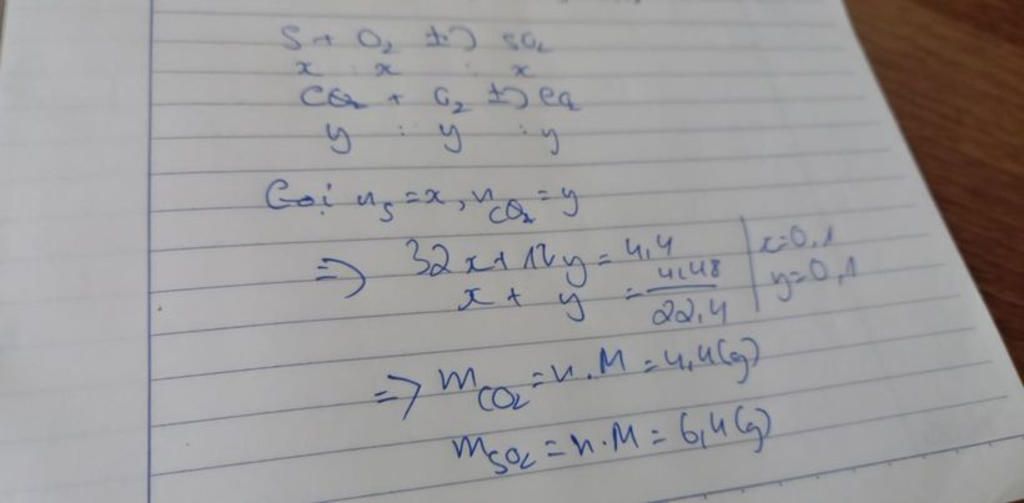 S + O₂ t°→ SO₂
x : x : x
CO₂ + O₂ t°→ CO₂
y : y : y
Gọi nS = x, nCO₂ = y
=> 32x + 12y = 4,4 | x = 0,1
x + y = 4,48/22,4 | y = 0,1
=> mCO₂ = n.M = 4,4(g)
mSO₂ = n.M = 6,4(g)